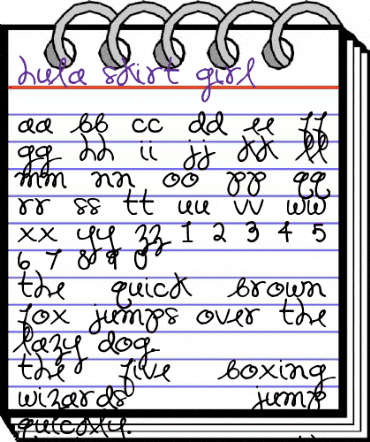 hula skirt girl
aa bb cc dd ee ff
gg hh ii jj kk ll
mm nn oo pp qq
rr ss tt uu vv ww
xx yy zz 1 2 3 4 5
6 7 8 9 0
the quick brown
fox jumps over the
lazy dog.
the five boxing
wizards jump
quickly.